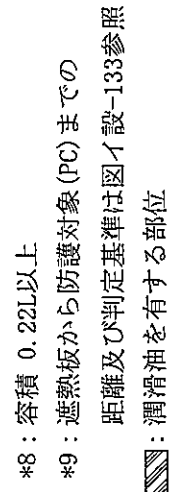 *8：容積 0.22L以上
*9：遮熱板から防護対象(PC)までの
距離及び判定基準は図イ設-133参照
：潤滑油を有する部位